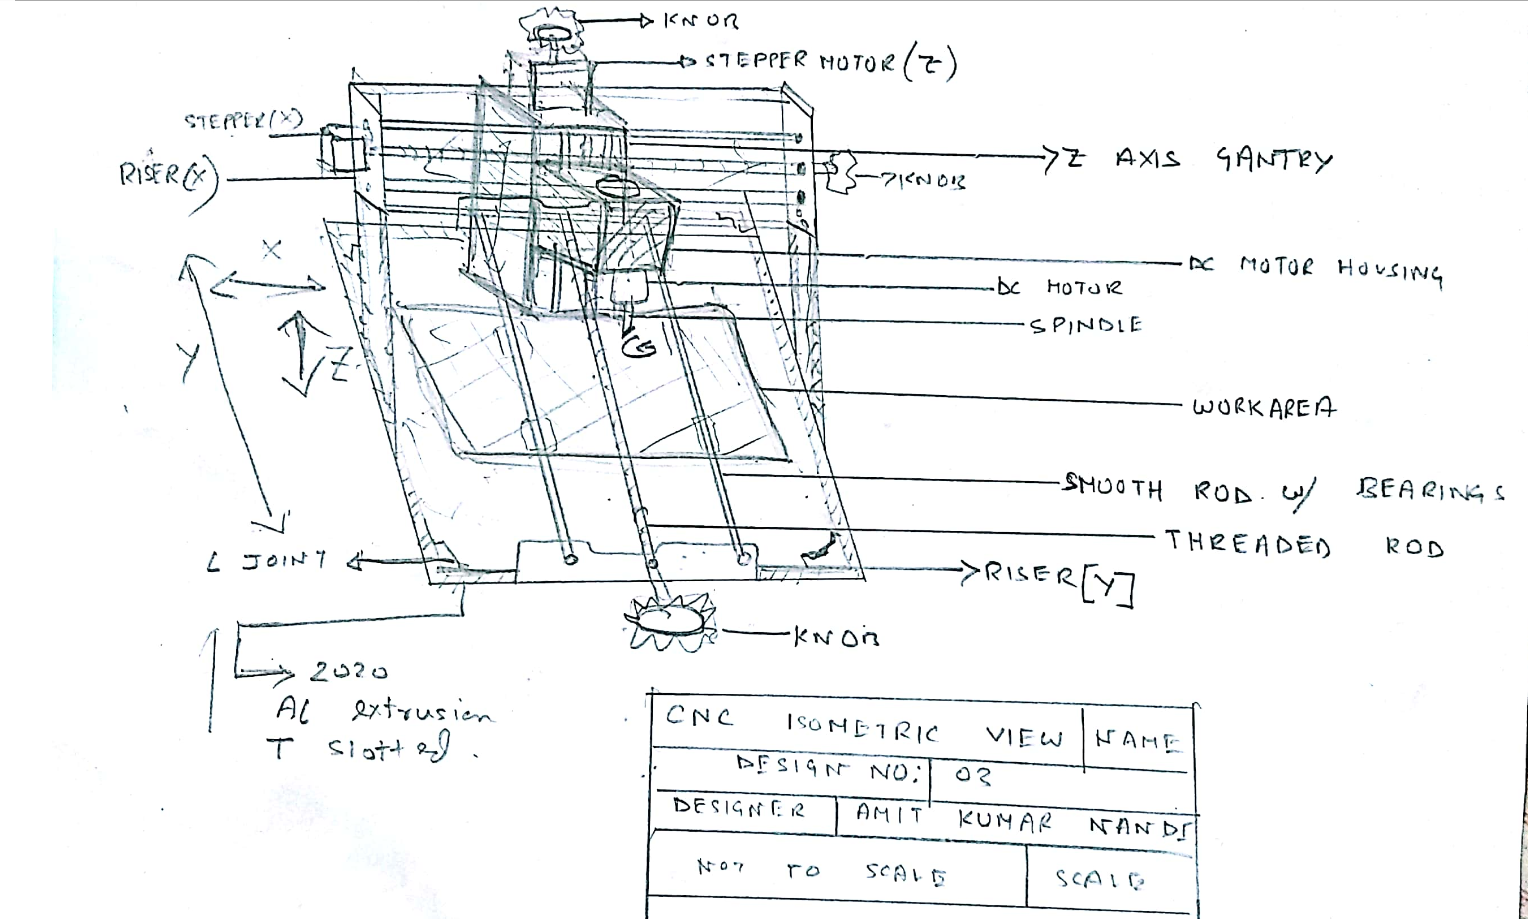 KNOB
STEPPER MOTOR (Z)
STEPPER(X)
RISER(X)
Z AXIS GANTRY
KNOB
X
Y
Z
DC MOTOR HOUSING
DC MOTOR
SPINDLE
WORKAREA
SMOOTH ROD. W/ BEARINGS
THREADED ROD
L JOINT
RISER[Y]
KNOB
2020
Al extrusion
T slotted.
CNC ISOMETRIC VIEW NAME
DESIGN NO: 03
DESIGNER AMIT KUMAR NANDI
NOT TO SCALE SCALE